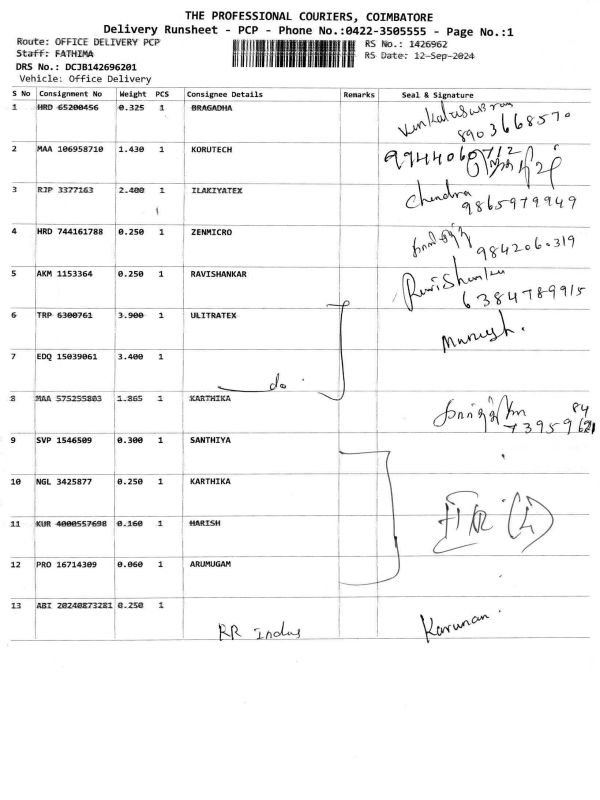 THE PROFESSIONAL COURIERS, COIMBATORE
Delivery Runsheet - PCP - Phone No.:0422-3505555 - Page No.:1
Route: OFFICE DELIVERY PCP
RS No.: 1426962
Staff: FATHIMA
RS Date: 12-Sep-2024
DRS No.: DCJB142696201
Vehicle: Office Delivery
S No Consignment No Weight PCS Consignee Details Remarks Seal & Signature
1 HRD 65200456 0.325 1 BRAGADHA
8903668570
2 MAA 106958710 1.430 1 KORUTECH 9944060712
3 RJP 3377163 2.400 1 ILAKIYATEX Chendra
9865979949
4 HRD 744161788 0.250 1 ZENMICRO
9842060319
5 AKM 1153364 0.250 1 RAVISHANKAR RaviShankar
6384789915
6 TRP 6300761 3.900 1 ULITRATEX
7 EDQ 15039061 3.400 1
do
8 MAA 575255803 1.865 1 KARTHIKA
9 SVP 1546509 0.300 1 SANTHIYA
10 NGL 3425877 0.250 1 KARTHIKA
11 KUR 4000557698 0.160 1 HARISH
12 PRO 16714309 0.060 1 ARUMUGAM
13 ABI 20240873281 0.250 1
RR Indus Karunan.